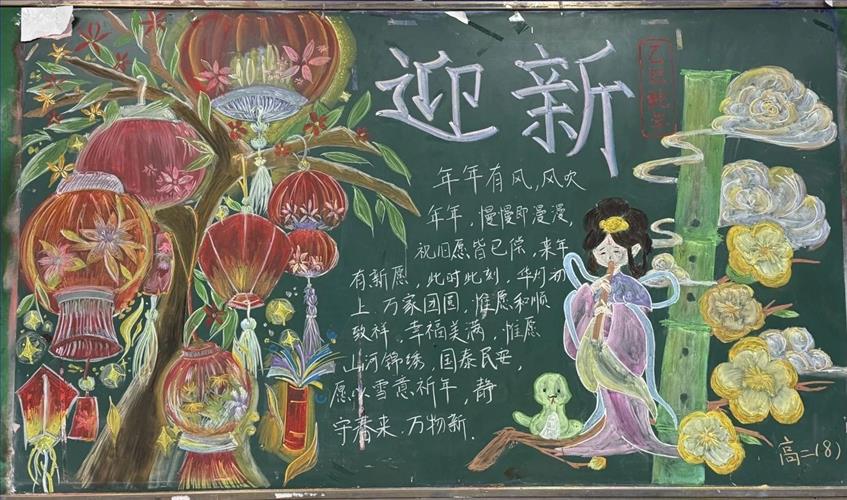 迎新
乙巳蛇年
年年有风,风吹
年年,慢慢即漫漫,
祝旧愿皆已偿,来年
有新愿,此时此刻,华灯初
上,万家团圆,惟愿和顺
致祥,幸福美满,惟愿
山河锦绣,国泰民安,
愿以雪意祈年,静
守春来.万物新.
高二(8)